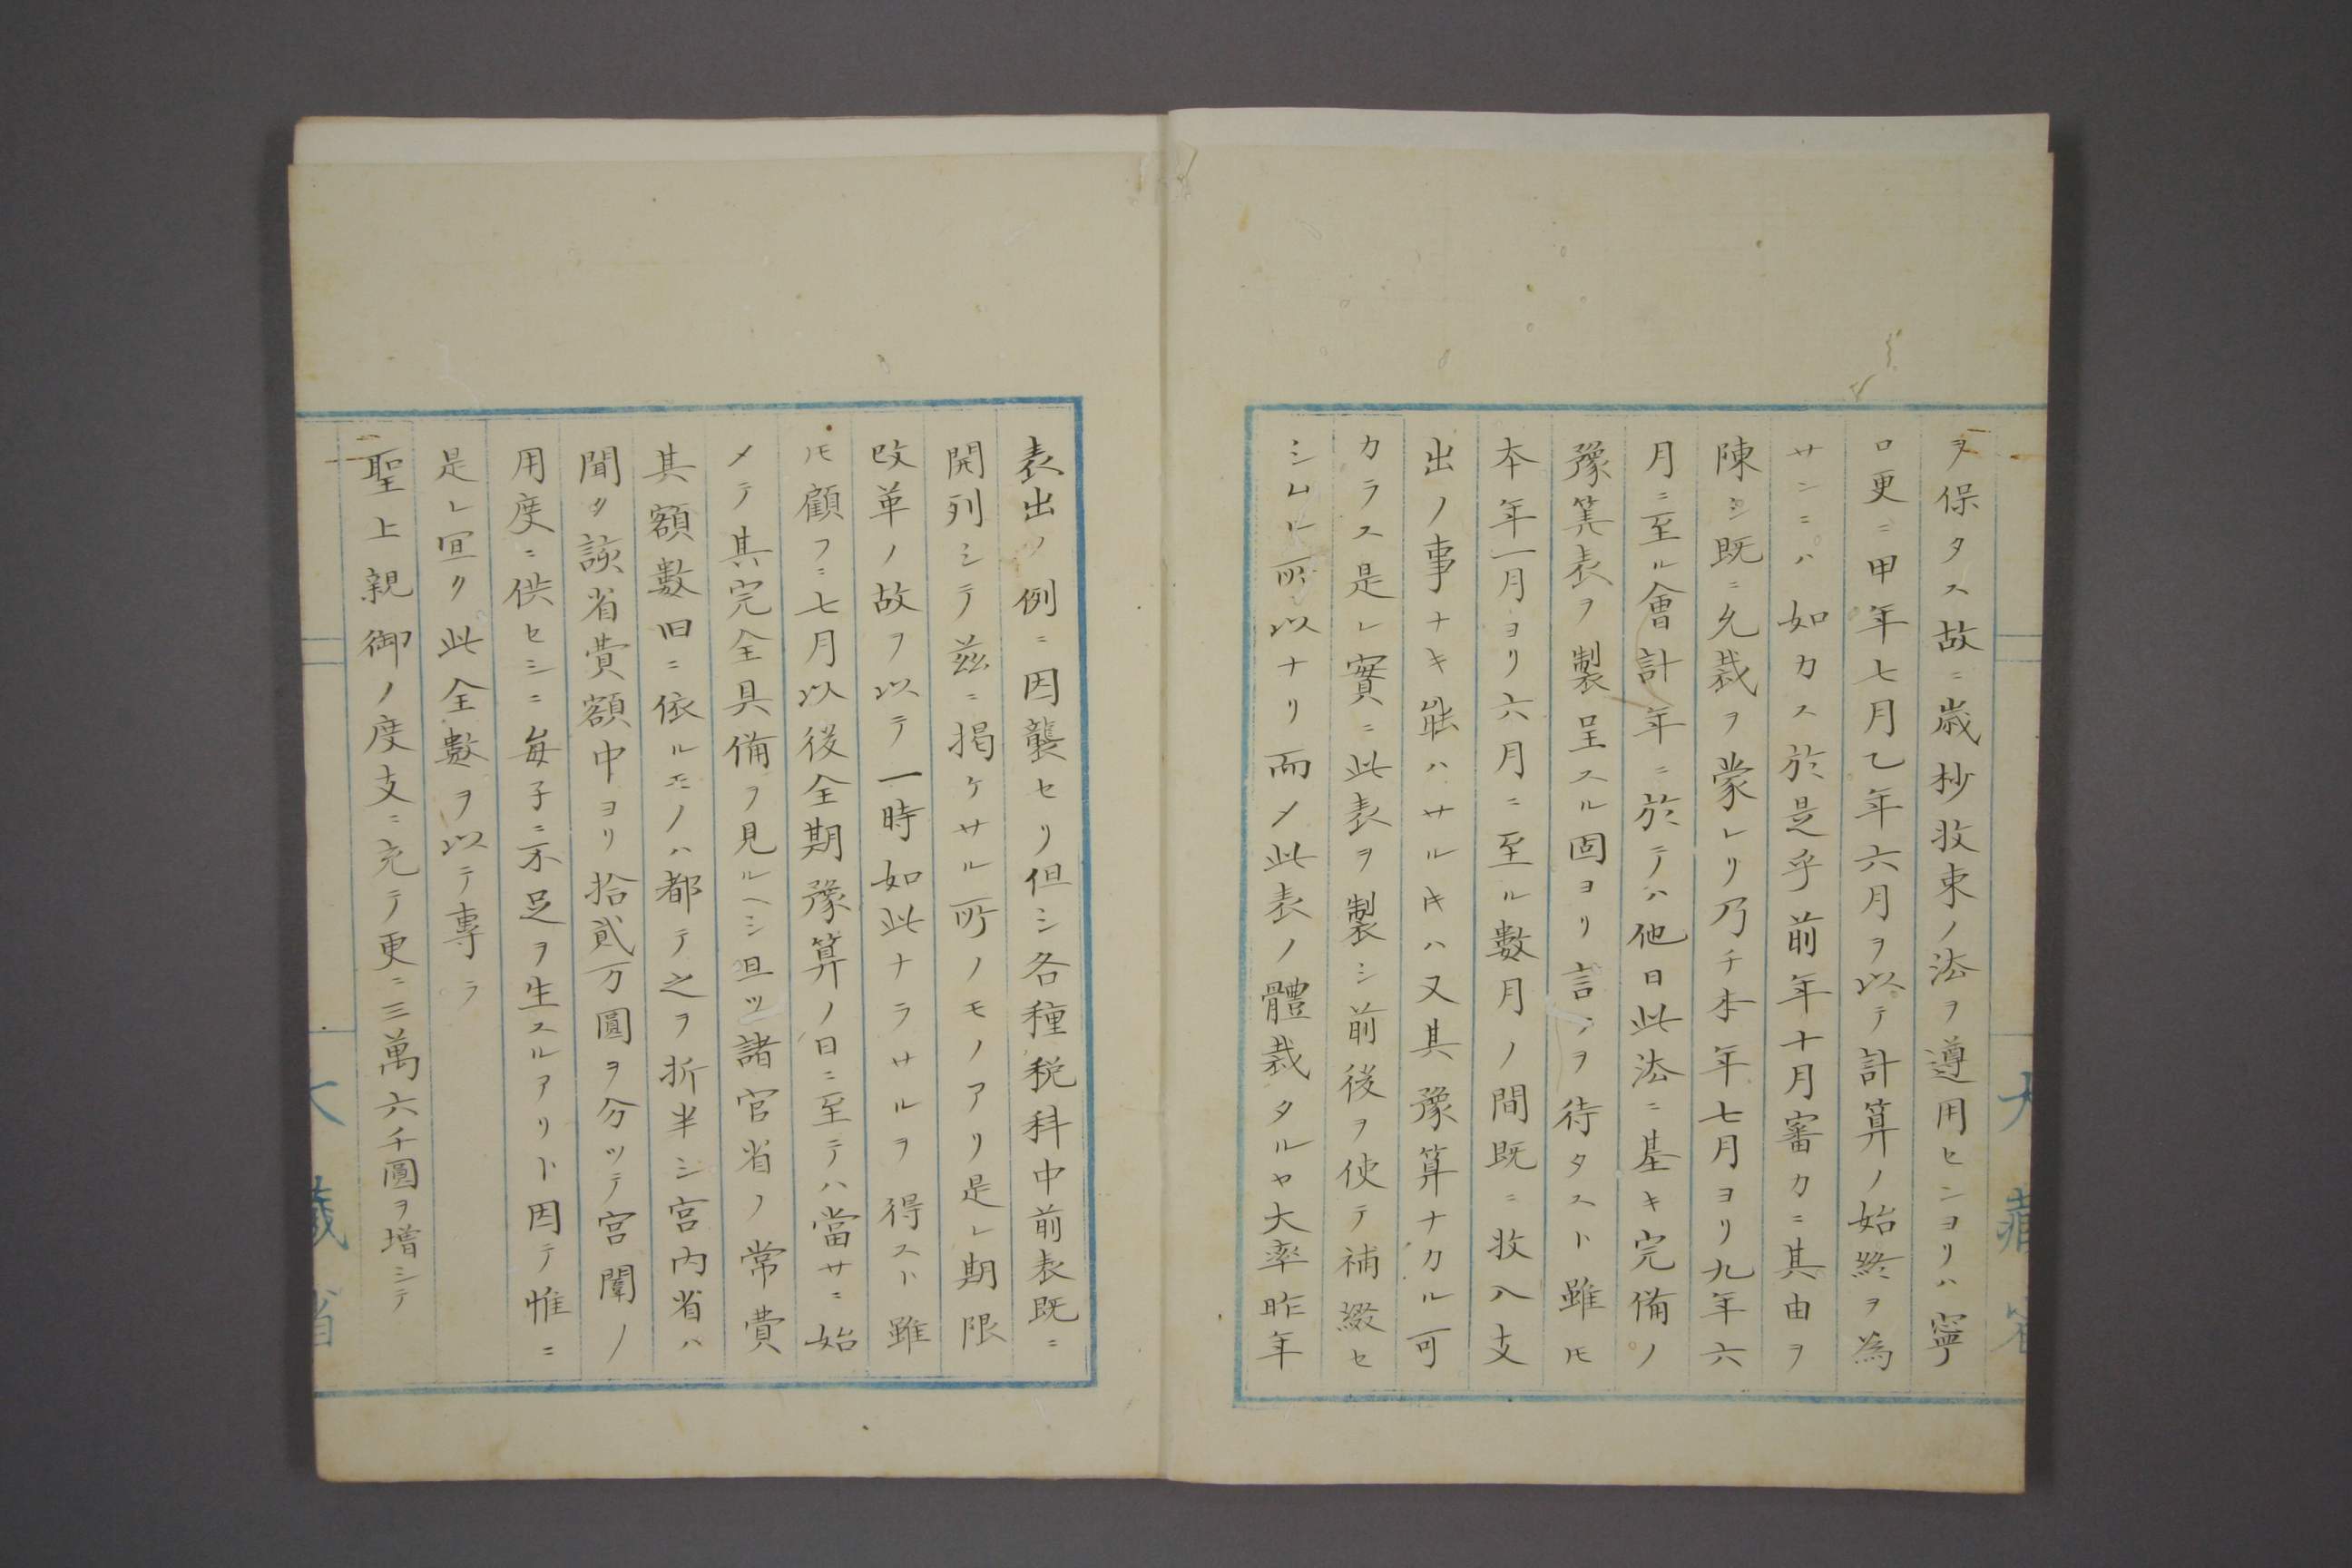 ヲ保タス故ニ歳杪收束ノ法ヲ遵用センヨリハ寧
ロ更ニ甲年七月乙年六月ヲ以テ計算ノ始終ヲ為
サンニハ如カス於是乎前年十月審カニ其由ヲ
陳シ既ニ允裁ヲ蒙レリ乃チ本年七月ヨリ九年六
月ニ至ル會計年ニ於テハ他日此法ニ基キ完備ノ
豫筭表ヲ製呈スル固ヨリ言ヲ待タスト雖𪜈
本年一月ヨリ六月ニ至ル數月ノ間既ニ收入支
出ノ事ナキ能ハサルキハ又其豫算ナカル可
カラス是レ實ニ此表ヲ製シ前後ヲ使テ補綴セ
シムル所以ナリ而メ此表ノ體裁タルヤ大率昨年
表出ノ例ニ因襲セリ但シ各種税科中前表既ニ
開列シテ茲ニ掲ケサル所ノモノアリ是レ期限
改革ノ故ヲ以テ一時如此ナラサルヲ得スト雖
𪜈顧フニ七月以後全期豫算ノ日ニ至テハ當サニ始
メテ其完全具備ヲ見ルヘシ且ツ諸官省ノ常費
其額數旧ニ依ルモノハ都テ之ヲ折半シ宮内省ハ
聞タ該省費額中ヨリ拾貳万圓ヲ分ツテ宮闈ノ
用度ニ供セシニ毎子ニ不足ヲ生スルアリト因テ惟ニ
是レ宜リ此全數ヲ以テ專ラ
聖上親御ノ度支ニ充テ更ニ三萬六千圓ヲ増シテ
大藏省